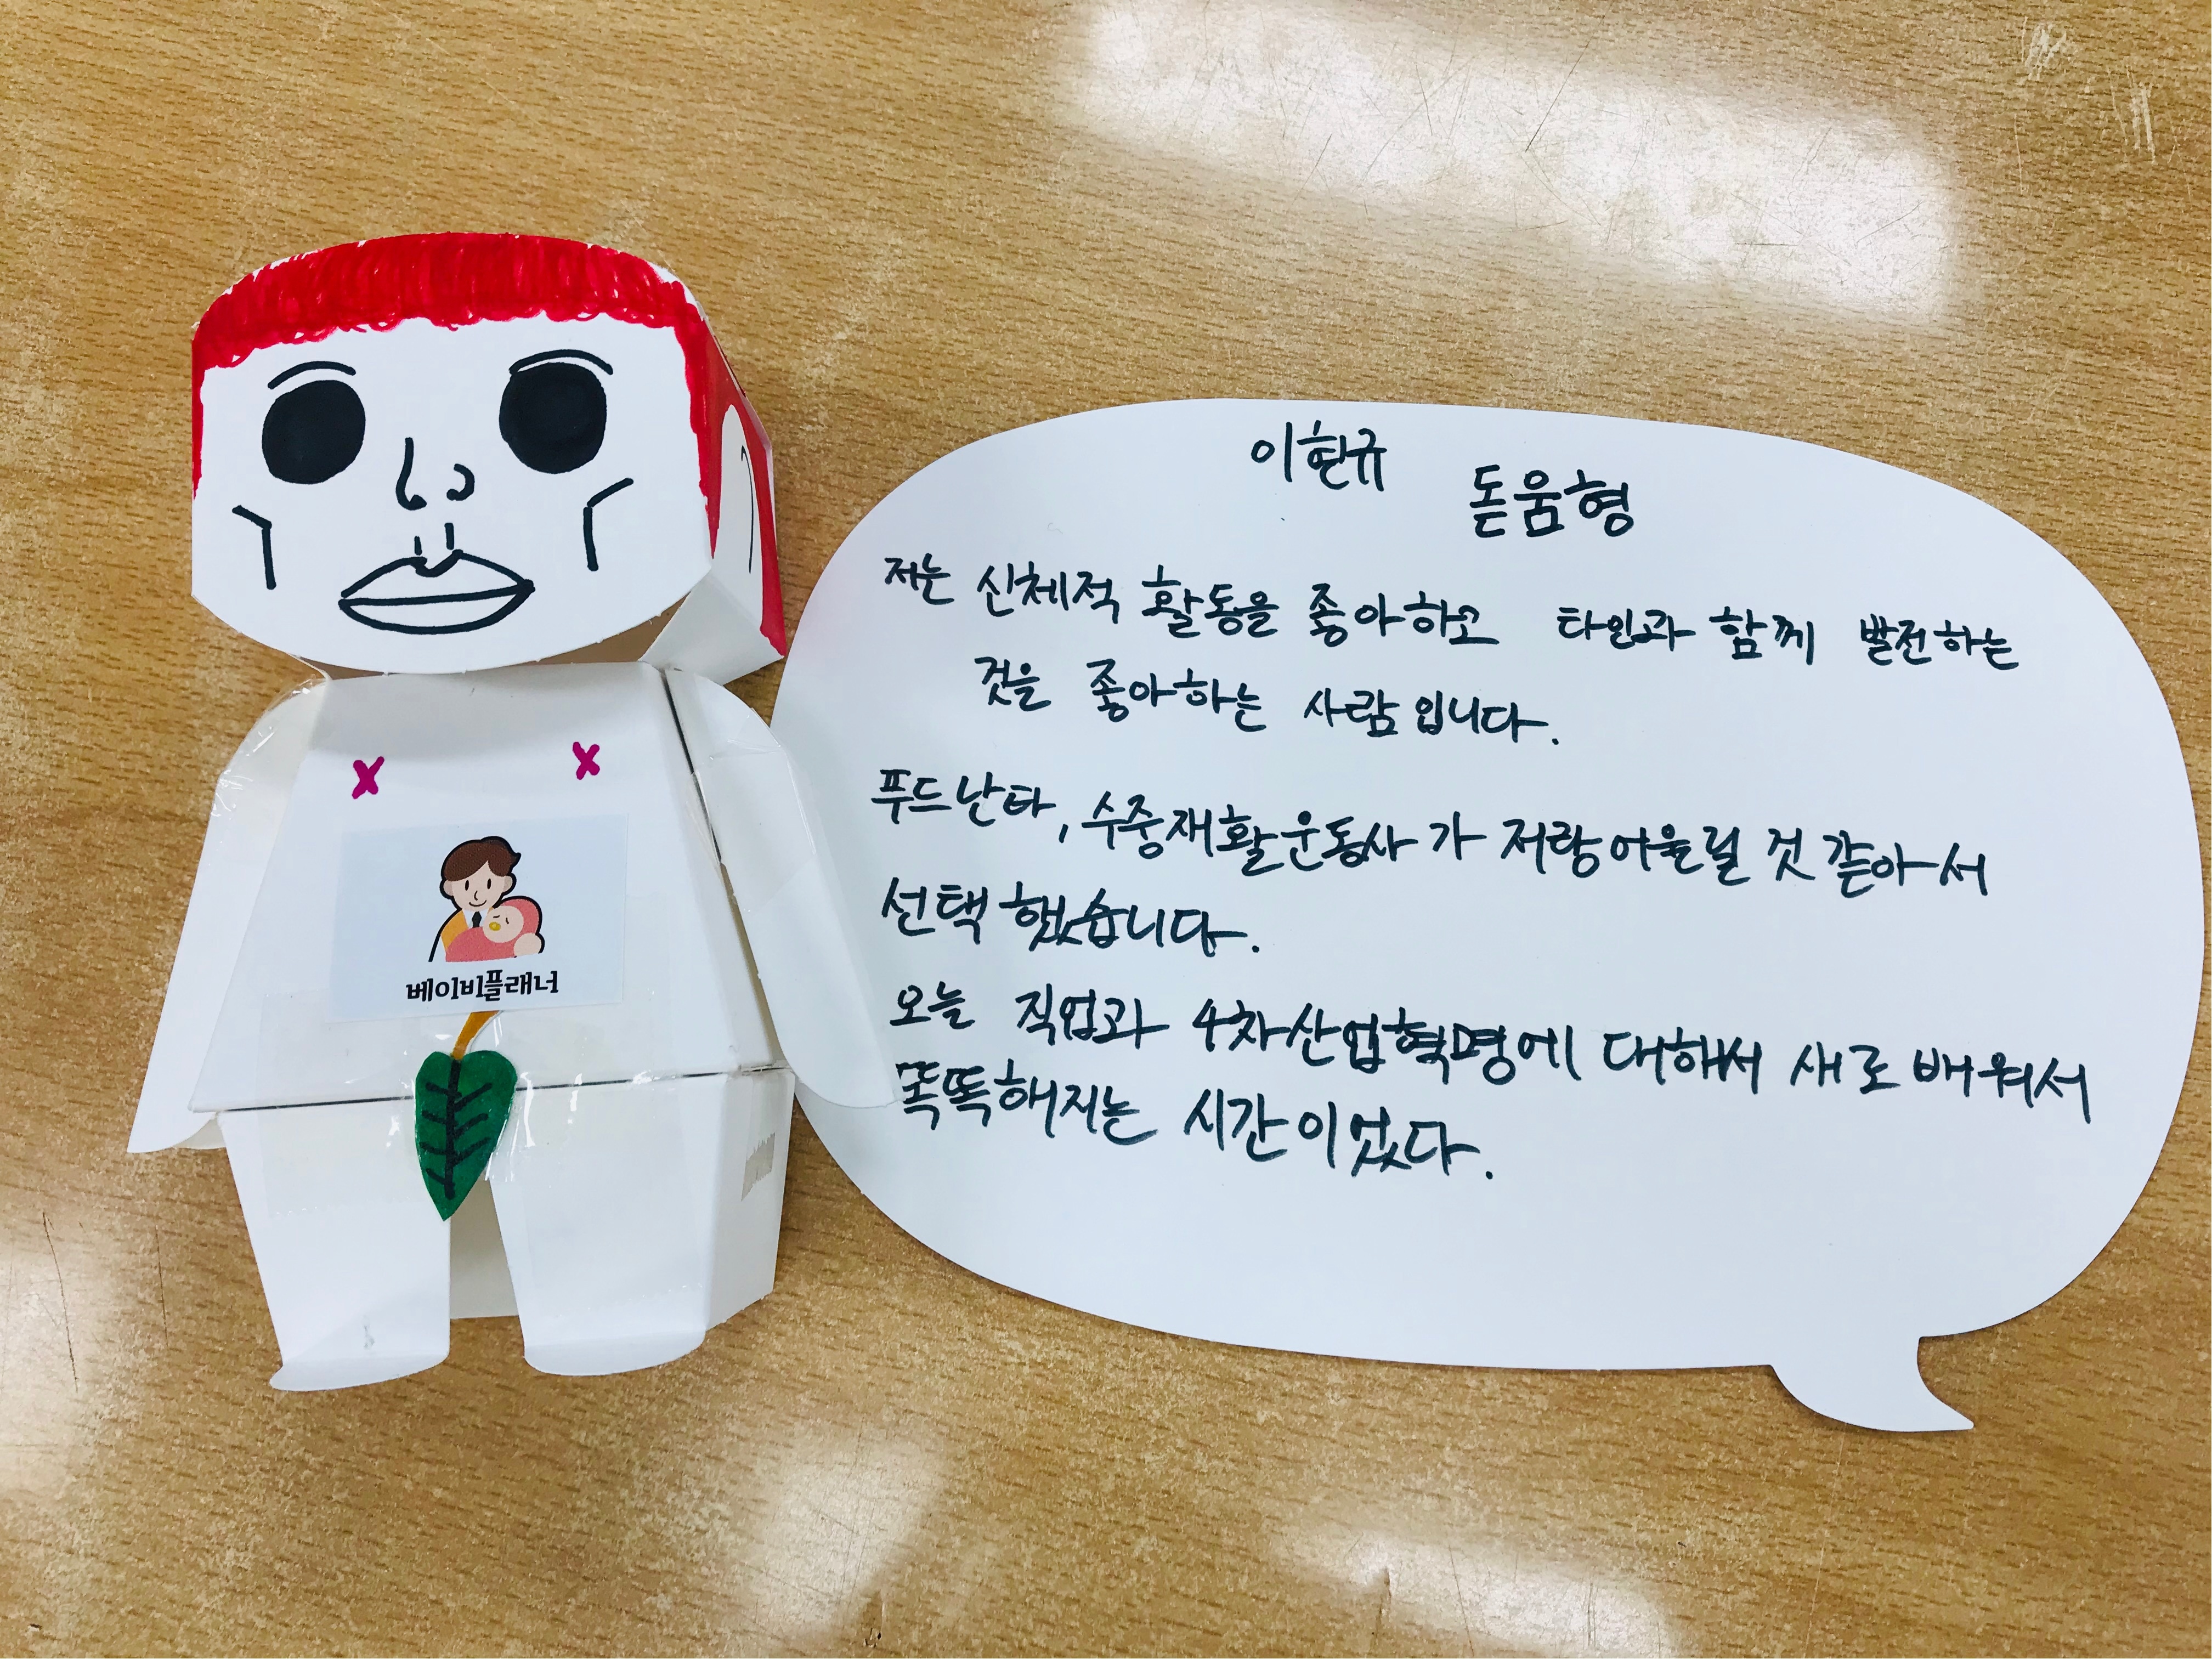 이현규
돋움형
저는 신체적 활동을 좋아하고 타인과 함께 발전하는
것을 좋아하는 사람입니다.
푸드난타, 수중재활운동사가 저랑어울릴 것 같아서
선택했습니다.
오늘 직업과 4차산업혁명에 대해서 새로 배워서
똑똑해지는 시간이었다.
베이비플래너